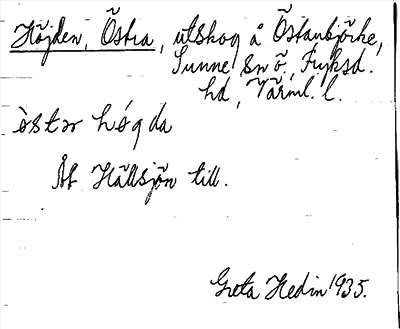 Höjden, Östra, utskog å Östanbjörke,
Sunne sn ö., Fryksd.
hd, Värml. l.
òstər høgda
Åt Hällsjön till.
Greta Hedin 1935.